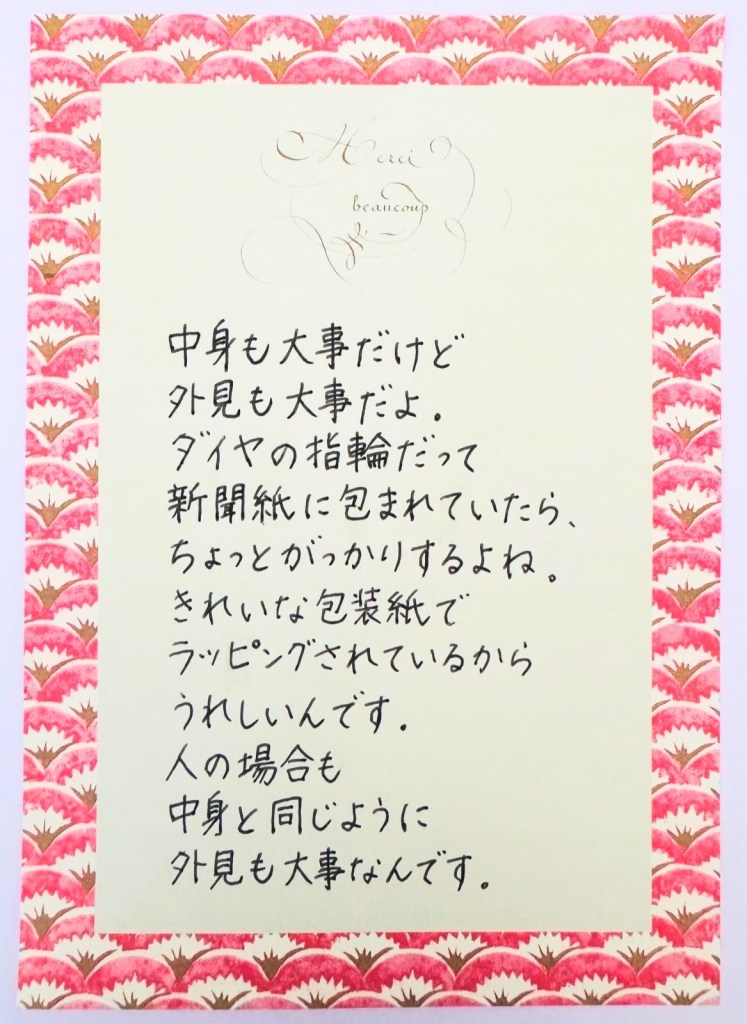 Merci
beaucoup
中身も大事だけど
外見も大事だよ。
ダイヤの指輪だって
新聞紙に包まれていたら、
ちょっとがっかりするよね。
きれいな包装紙で
ラッピングされているから
うれしいんです。
人の場合も
中身と同じように
外見も大事なんです。